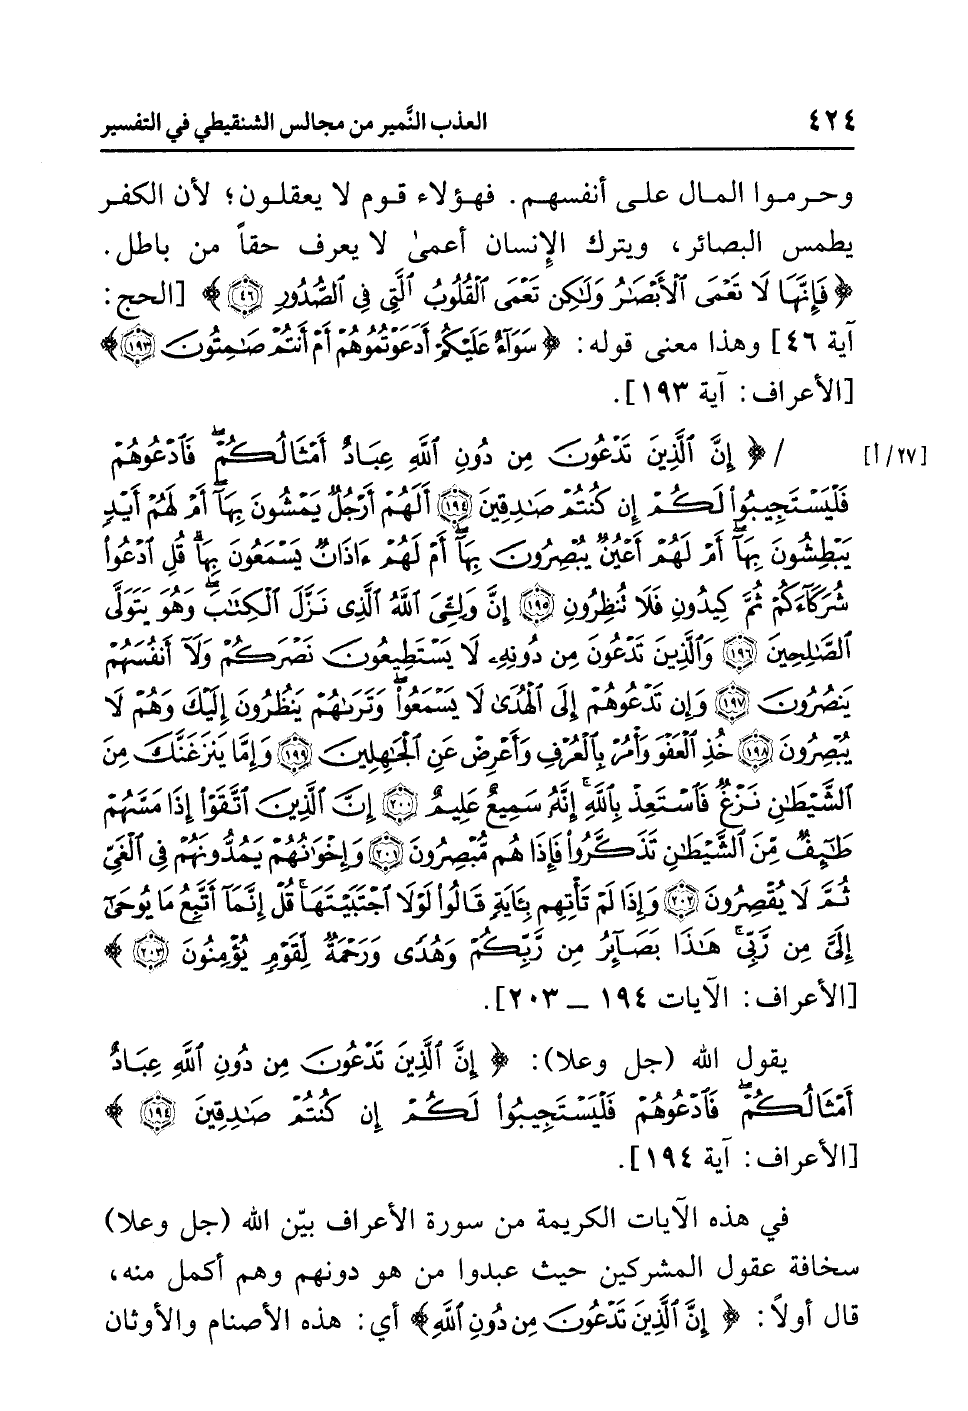 ٤٢٤ العذب النَّمير من مجالس الشنقيطي في التفسير
وحرموا المال على أنفسهم. فهؤلاء قوم لا يعقلون؛ لأن الكفر
يطمس البصائر، ويترك الإنسان أعمىٰ لا يعرف حقاً من باطل.
﴿ فَإِنَّهَا لَا تَعْمَى ٱلْأَبْصَٰرُ وَلَٰكِن تَعْمَى ٱلْقُلُوبُ ٱلَّتِى فِى ٱلصُّدُورِ ٤٦ ﴾ [الحج:
آية ٤٦] وهذا معنى قوله: ﴿ سَوَآءٌ عَلَيْكُمْ أَدَعَوْتُمُوهُمْ أَمْ أَنتُمْ صَٰمِتُونَ ١٩٣ ﴾
[الأعراف: آية ١٩٣].
[٢٧/أ] / ﴿ إِنَّ ٱلَّذِينَ تَدْعُونَ مِن دُونِ ٱللَّهِ عِبَادٌ أَمْثَالُكُمْ ۖ فَٱدْعُوهُمْ
فَلْيَسْتَجِيبُوا۟ لَكُمْ إِن كُنتُمْ صَٰدِقِينَ ١٩٤ أَلَهُمْ أَرْجُلٌ يَمْشُونَ بِهَآ ۖ أَمْ لَهُمْ أَيْدٍ
يَبْطِشُونَ بِهَآ ۖ أَمْ لَهُمْ أَعْيُنٌ يُبْصِرُونَ بِهَآ ۖ أَمْ لَهُمْ ءَاذَانٌ يَسْمَعُونَ بِهَا ۗ قُلِ ٱدْعُوا۟
شُرَكَآءَكُمْ ثُمَّ كِيدُونِ فَلَا تُنظِرُونِ ١٩٥ إِنَّ وَلِـِّۧىَ ٱللَّهُ ٱلَّذِى نَزَّلَ ٱلْكِتَٰبَ ۖ وَهُوَ يَتَوَلَّى
ٱلصَّٰلِحِينَ ١٩٦ وَٱلَّذِينَ تَدْعُونَ مِن دُونِهِۦ لَا يَسْتَطِيعُونَ نَصْرَكُمْ وَلَآ أَنفُسَهُمْ
يَنصُرُونَ ١٩٧ وَإِن تَدْعُوهُمْ إِلَى ٱلْهُدَىٰ لَا يَسْمَعُوا۟ ۖ وَتَرَىٰهُمْ يَنظُرُونَ إِلَيْكَ وَهُمْ لَا
يُبْصِرُونَ ١٩٨ خُذِ ٱلْعَفْوَ وَأْمُرْ بِٱلْعُرْفِ وَأَعْرِضْ عَنِ ٱلْجَٰهِلِينَ ١٩٩ وَإِمَّا يَنزَغَنَّكَ مِنَ
ٱلشَّيْطَٰنِ نَزْغٌ فَٱسْتَعِذْ بِٱللَّهِ ۚ إِنَّهُۥ سَمِيعٌ عَلِيمٌ ٢٠٠ إِنَّ ٱلَّذِينَ ٱتَّقَوْا۟ إِذَا مَسَّهُمْ
طَٰٓئِفٌ مِّنَ ٱلشَّيْطَٰنِ تَذَكَّرُوا۟ فَإِذَا هُم مُّبْصِرُونَ ٢٠١ وَإِخْوَٰنُهُمْ يَمُدُّونَهُمْ فِى ٱلْغَىِّ
ثُمَّ لَا يُقْصِرُونَ ٢٠٢ وَإِذَا لَمْ تَأْتِهِم بِـَٔايَةٍ قَالُوا۟ لَوْلَا ٱجْتَبَيْتَهَا ۚ قُلْ إِنَّمَآ أَتَّبِعُ مَا يُوحَىٰٓ
إِلَىَّ مِن رَّبِّى ۚ هَٰذَا بَصَآئِرُ مِن رَّبِّكُمْ وَهُدًى وَرَحْمَةٌ لِّقَوْمٍ يُؤْمِنُونَ ٢٠٣ ﴾
[الأعراف: الآيات ١٩٤ ــ ٢٠٣].
يقول الله (جل وعلا): ﴿ إِنَّ ٱلَّذِينَ تَدْعُونَ مِن دُونِ ٱللَّهِ عِبَادٌ
أَمْثَالُكُمْ ۖ فَٱدْعُوهُمْ فَلْيَسْتَجِيبُوا۟ لَكُمْ إِن كُنتُمْ صَٰدِقِينَ ١٩٤ ﴾
[الأعراف: آية ١٩٤].
في هذه الآيات الكريمة من سورة الأعراف بيّن الله (جل وعلا)
سخافة عقول المشركين حيث عبدوا من هو دونهم وهم أكمل منه،
قال أولاً: ﴿ إِنَّ ٱلَّذِينَ تَدْعُونَ مِن دُونِ ٱللَّهِ ﴾ أي: هذه الأصنام والأوثان